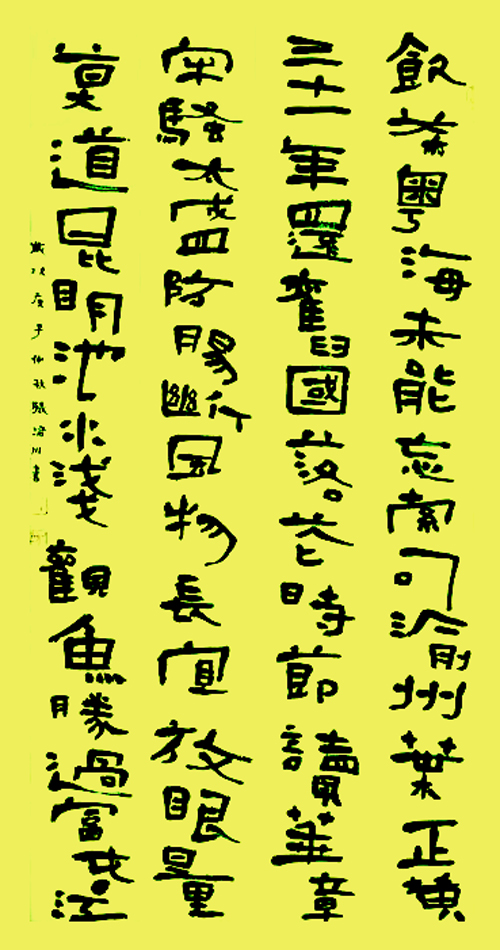 飲茶粵海未能忘索句渝州葉正黄
三十一年還舊國落花時節讀華章
牢騷太盛防腸斷風物長宜放眼量
莫道昆明池水淺觀魚勝過富春江
歲次庚子仲秋川書